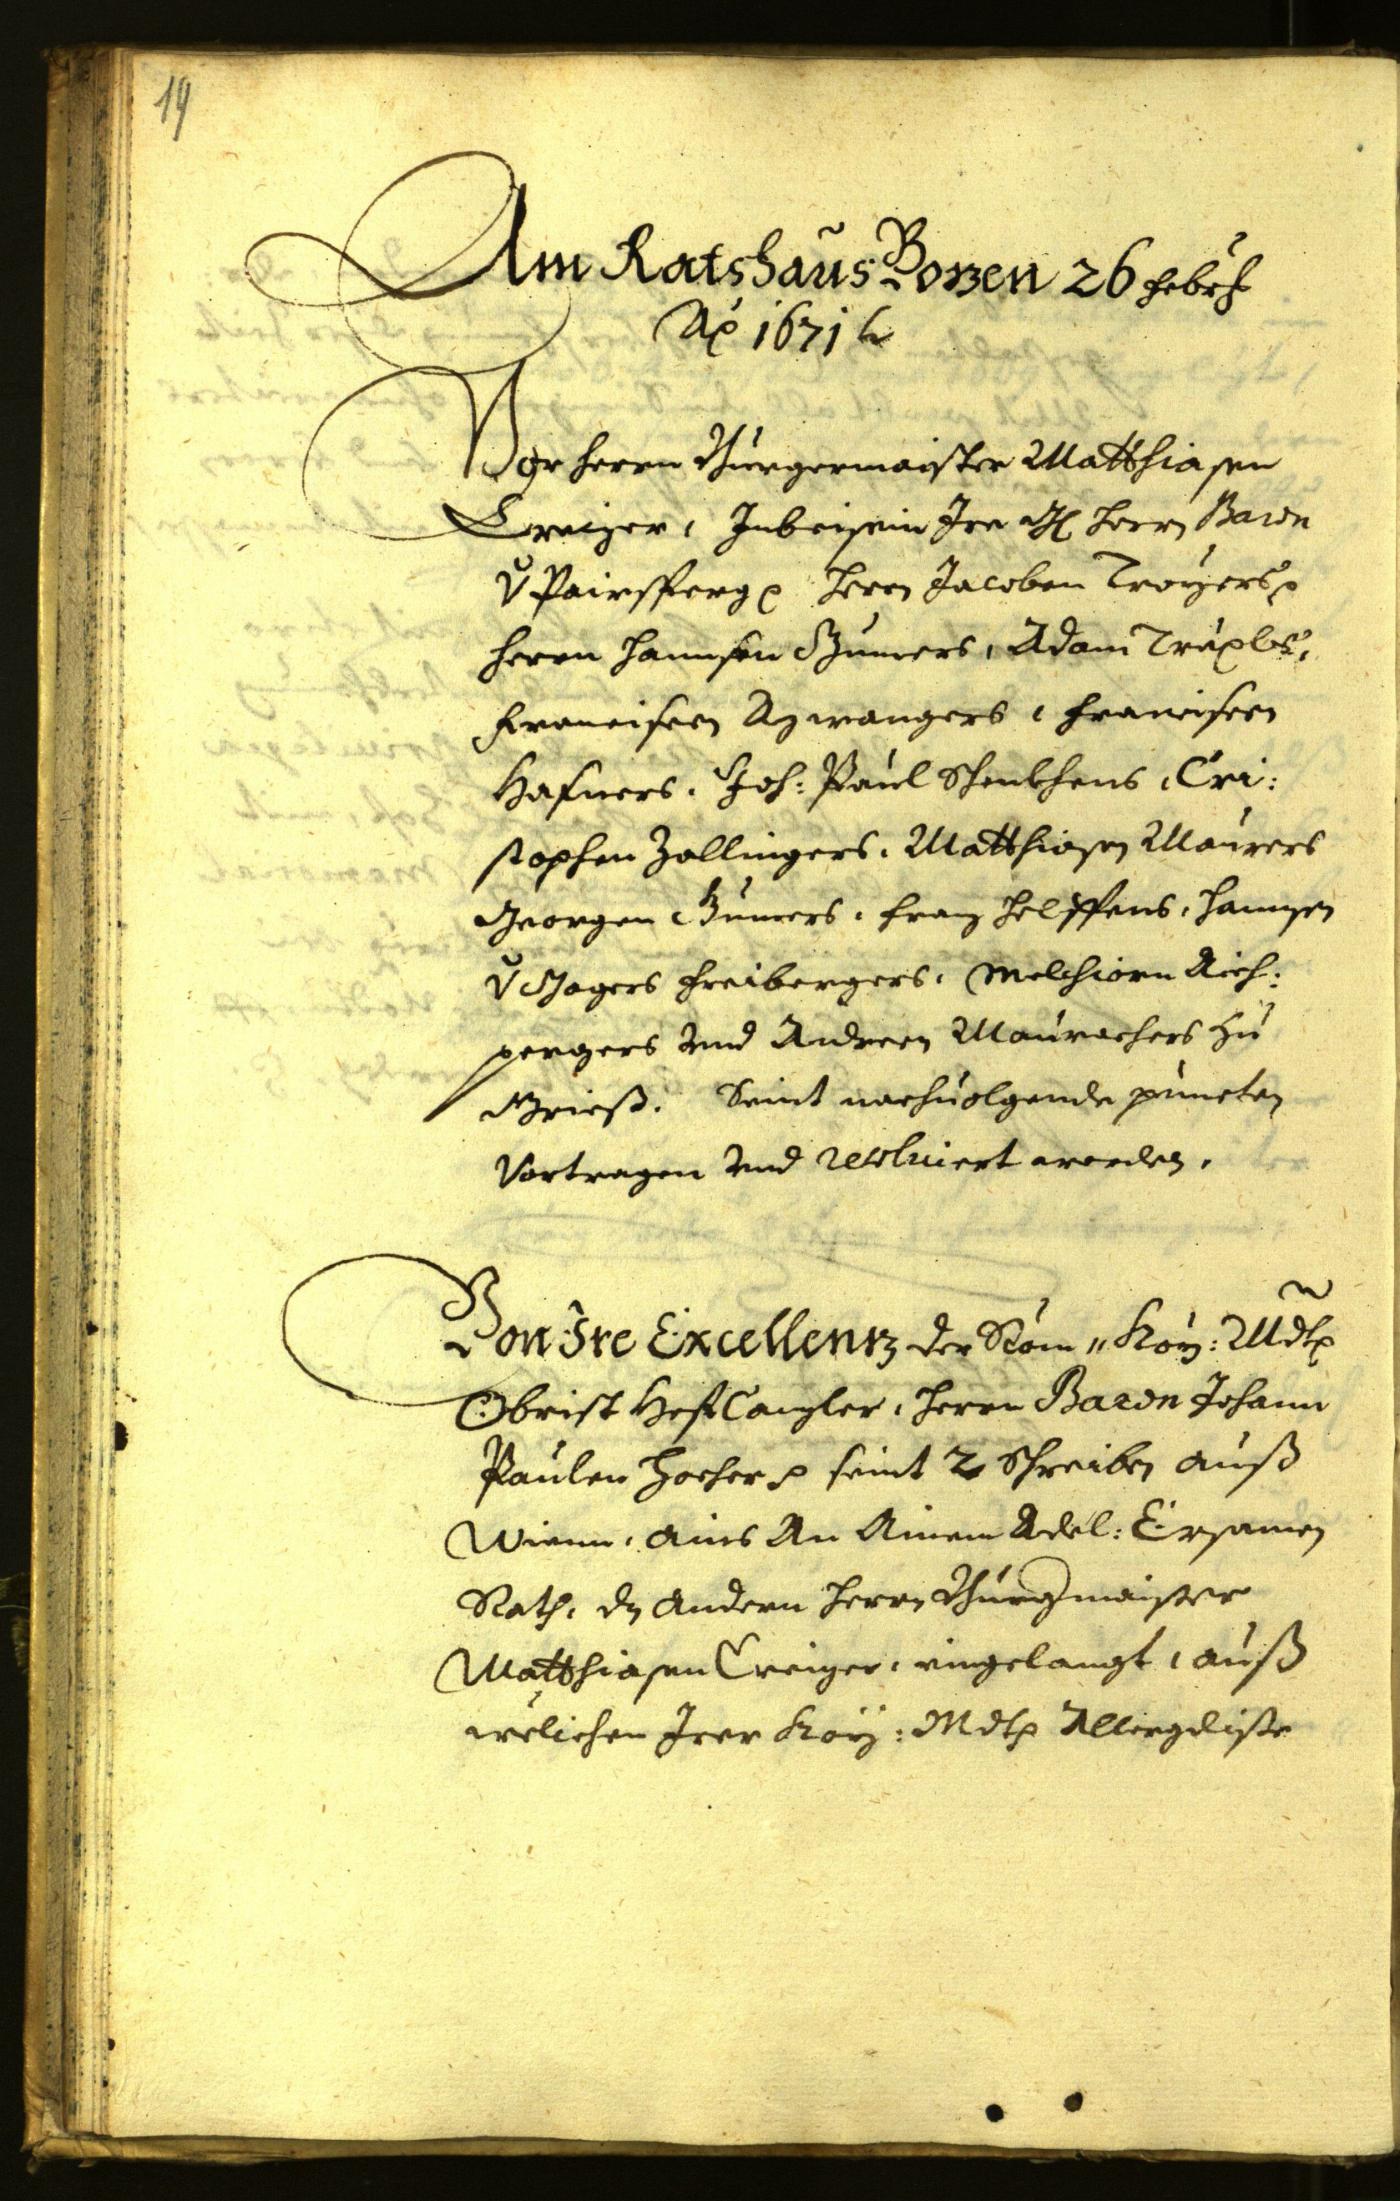 19
Am Ratshaus Bozen 26 Febr:
Ao 1671
Vor Herrn Burgermaister Matthiasen
Creizer, Inbeisein Irr Herrn Baron
V Pairsperg Herrn Jacoben Troyers
Herrn Hannsen Gumers, Adam Trüxls,
Francisen Azwangers, Francisen
Hafners, Joh: Paul Schenkhens, Cri:
stophen Zallingers, Matthiasen Maurers
Georgen Gumers, Franz Helffens, Hannsen
V Jagers Freibergers, Melchiorn Aich:
pergers und Andreen Maurachers zu
Grieß. Seint nachuolgende puncten
Vortragen und resoluiert worden.
Von Ire Excellenz der Röm: Kay: Mdt
Obrist HofCanzler, Herrn Baron Johann
Paulen Hocher seint 2 Schreiben auß
Wienn, ains An Ainem Adel: Ersamen
Rath, dz andern Herrn Burgmaister
Matthiasen Creizer, eingelangt, auß
welichen Irer Kay: Mdt Allergdiste